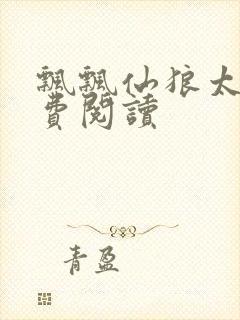 飄飄仙狼太
費閱讀
青盈